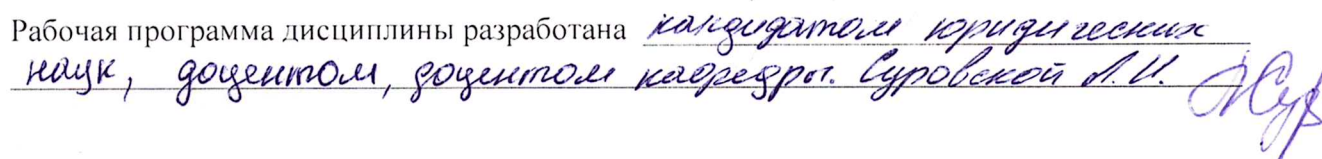 Рабочая программа дисциплины разработана кандидатом юридических
наук, доцентом, доцентом кафедры. Суровской Л.И.